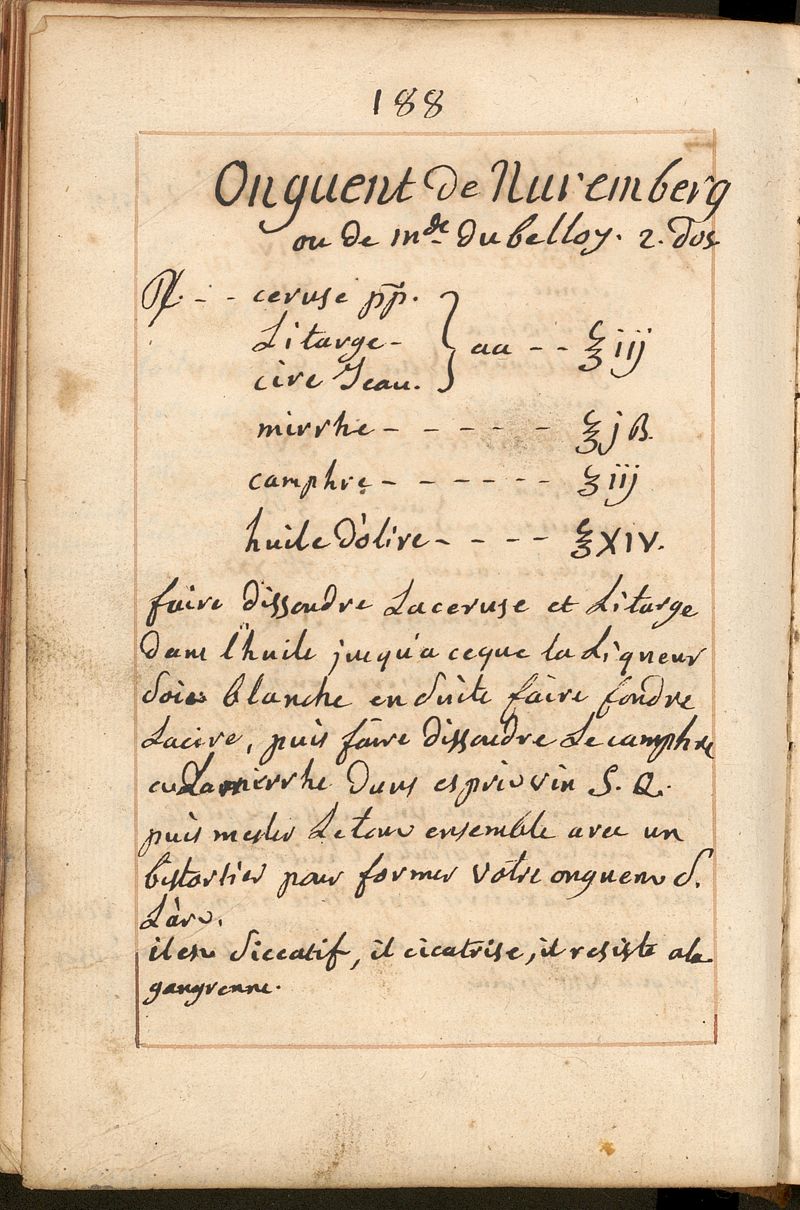 188
Onguent de Nuremberg
ou de mde du belloy. 2. dos
℞. - - ceruse pp.
Litarge - } aa - - ℥ iij
cire Jeau.
mirrhe - - - - - ℥ j ß.
camphre - - - - - - ʒ iij
huile d'olive - - - - ℥ XIV.
faire dissoudre La ceruse et Litarge
dans l'huile jusqu'a ceque la Liqueur
soit blanche en suite faire fondre
Lacire, puis faire dissoudre Le camphre
et La mirrhe dans esprit vin S. Q.
puis mesler Le tout ensemble avec un
bistortier pour former votre onguent S.
L'art.
il est siccatif, il cicatrise, il resiste a la
gangrenne.